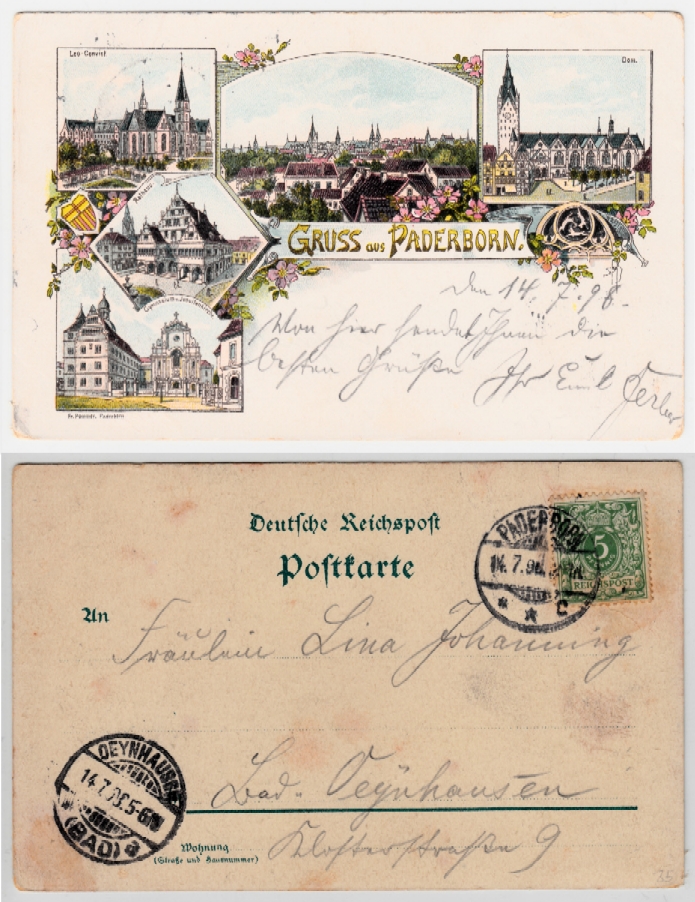 Leo-Convict
Dom.
Rathaus
Gymnasium u. Jesuitenkirche
GRUSS aus PADERBORN.
den 14. 7. 98.
Von hier sendet Ihnen die
besten Grüße Ihr Emil
Paderborn
Deutsche Reichspost
Postkarte
PADERBORN
14.7.98.
C
5
REICHSPOST
An
Fräulein Lina Johanning
OEYNHAUSEN
14.7.98.5-6N
(BAD) a
Bad-Oeynhausen
Wohnung
(Straße und Hausnummer)
Klosterstraße 9
35